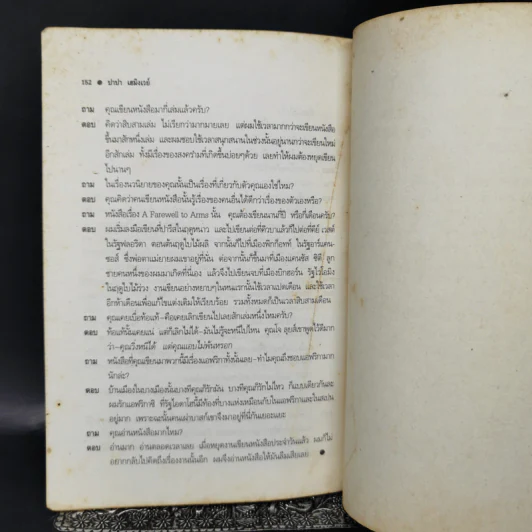 152 ● ปาปา เฮมิงเวย์
ถาม คุณเขียนหนังสือมากี่เล่มแล้วครับ?
ตอบ คิดว่าสิบสามเล่ม ไม่เรียกว่ามากมายเลย แต่ผมใช้เวลามากกว่าจะเขียนหนังสือ
ขึ้นมาสักหนึ่งเล่ม และผมชอบใช้เวลาสนุกสนานในช่วงนั้นอยู่นานกว่าจะเขียนใหม่
อีกสักเล่ม ทั้งมีเรื่องของสงครามที่เกิดขึ้นบ่อยๆด้วย เลยทำให้ผมต้องหยุดเขียน
ไปนานๆ
ถาม ในเรื่องนวนิยายของคุณนั้นเป็นเรื่องที่เกี่ยวกับตัวคุณเองใช่ไหม?
ตอบ คุณคิดว่าคนเขียนหนังสือนั้นรู้เรื่องของคนอื่นได้ดีกว่าเรื่องของตัวเองหรือ?
ถาม หนังสือเรื่อง A Farewell to Arms นั้น คุณต้องเขียนนานกี่ปี หรือกี่เดือนครับ?
ตอบ ผมเริ่มลงมือเขียนที่ปารีสในฤดูหนาว และไปเขียนต่อที่คิวบาแล้วก็ไปต่อที่คีย์ เวสต์
ในรัฐฟลอริดา ตอนต้นฤดูใบไม้ผลิ จากนั้นก็ไปที่เมืองพิกก็อทท์ ในรัฐอาร์คัน-
ซอส์ ซึ่งพ่อตาแม่ยายผมเขาอยู่ที่นั่น ต่อจากนั้นก็ขึ้นมาที่เมืองแคนซัส ซิตี้ ลูก
ชายคนหนึ่งของผมมาเกิดที่นี่เอง แล้วจึงไปเขียนจบที่เมืองบิกฮอร์น รัฐไวโอมิง
ในฤดูใบไม้ร่วง งานเขียนอย่างหยาบๆในหนแรกนั้นใช้เวลาแปดเดือน และใช้เวลา
อีกห้าเดือนเพื่อแก้ไขแต่งเติมให้เรียบร้อย รวมทั้งหมดก็เป็นเวลาสิบสามเดือน
ถาม คุณเคยเบื่อท้อแท้-คือเคยเลิกเขียนไปเลยสักเล่มหนึ่งไหมครับ?
ตอบ ท้อแท้นั้นเคยแน่ แต่ก็เลิกไม่ได้-มันไม่รู้จะหนีไปไหน คุณโจ ลุยส์เขาพูดไว้ดีมาก
ว่า-คุณวิ่งหนีได้ แต่คุณแอบไม่พ้นหรอก
ถาม หนังสือที่คุณเขียนมาพวกนี้มีเรื่องแอฟริกาทั้งนั้นเลย-ทำไมคุณถึงชอบแอฟริกามาก
นักล่ะ?
ตอบ บ้านเมืองในบางเมืองนั้นบางทีคุณก็รักมัน บางทีคุณก็รักไม่ไหว ก็แบบเดียวกันละ
ผมรักแอฟริกาซิ ที่รัฐไอดาโฮนี้มีท้องที่บางแห่งเหมือนกับในแอฟริกาและในสเปน
อยู่มาก เพราะฉะนั้นคนเผ่าบาสก์เขาจึงมาอยู่ที่นี่กันเยอะแยะ
ถาม คุณอ่านหนังสือมากไหม?
ตอบ อ่านมาก อ่านตลอดเวลาเลย เมื่อหยุดงานเขียนหนังสือประจำวันแล้ว ผมก็ไม่
อยากกลับไปคิดถึงเรื่องงานนั้นอีก ผมจึงอ่านหนังสือให้มันลืมเสียเลย